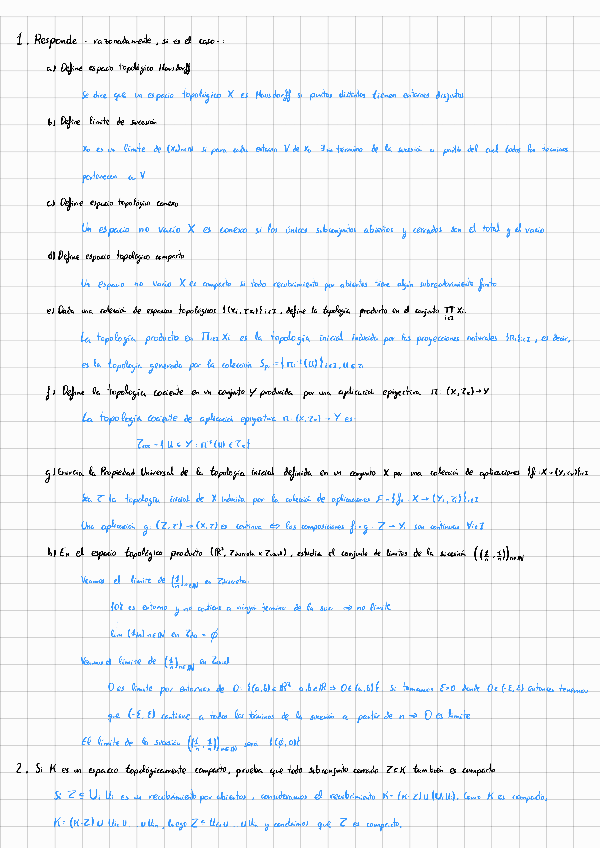 1. Responde - razonadamente, si es el caso -:
a) Define espacio topológico Hausdorff
Se dice que un espacio topológico X es Hausdorff si puntos distintos tienen entornos disjuntos
b) Define límite de sucesión
x₀ es un límite de (xₙ)n∈ℕ si para cada entorno V de x₀ ∃ un término de la sucesión a partir del cual todos los términos
pertenecen a V
c) Define espacio topológico conexo
Un espacio no vacío X es conexo si los únicos subconjuntos abiertos y cerrados son el total y el vacío
d) Define espacio topológico compacto
Un espacio no vacío X es compacto si todo recubrimiento por abiertos tiene algún subrecubrimiento finito
e) Dada una colección de espacios topológicos {(Xᵢ, τᵢ)}i∈I, define la topología producto en el conjunto ∏ Xᵢ
i∈I
La topología producto en ∏i∈I Xᵢ es la topología inicial inducida por las proyecciones naturales {πᵢ}i∈I, es decir,
es la topología generada por la colección Sp = {πᵢ⁻¹(U)}i∈I, U∈τᵢ
f) Define la topología cociente en un conjunto Y producida por una aplicación epiyectiva π: (X, τx) → Y
La topología cociente de aplicación epiyectiva π: (X, τx) → Y es
= {U ⊂ Y : π⁻¹(U) ∈ τx}
g) Enuncia la Propiedad Universal de la topología inicial definida en un conjunto X por una colección de aplicaciones {fᵢ: X → (Yᵢ, τᵢ)}i∈I
Sea τ la topología inicial de X inducida por la colección de aplicaciones F = {fᵢ: X → (Yᵢ, τᵢ)}i∈I
Una aplicación g: (Z, τ') → (X, τ) es continua ⇔ las composiciones fᵢ∘g: Z → Yᵢ son continuas ∀i∈I
h) En el espacio topológico producto (ℝ², τdiscreta × τusual), estudia el conjunto de límites de la sucesión ((1/n, 1/n))n∈ℕ
Veamos el límite de (1/n)n∈ℕ en τdiscreta:
{0} es entorno y no contiene a ningún término de la suc. ⇒ no límite
Lim (1/n)n∈ℕ en = ∅
Veamos el límite de (1/n)n∈ℕ en τusual
0 es límite por entornos de 0 {(a,b) ∈ ℝ² a,b∈ℝ ⇒ 0∈(a,b)} Si tomamos ε>0 donde 0∈(-ε,ε) entonces tenemos
que (-ε,ε) contiene a todos los términos de la sucesión a partir de n ⇒ 0 es límite
El límite de la sucesión ((1/n, 1/n))n∈ℕ será {(∅,0)}
2. Si K es un espacio topológicamente compacto, prueba que todo subconjunto cerrado Z⊂K también es compacto
Si Z ⊆ ∪ᵢ Uᵢ es un recubrimiento por abiertos, consideramos el recubrimiento K = (K-Z) ∪ (∪ᵢUᵢ). Como K es compacto,
K = (K-Z) ∪ Uᵢ₁ ∪ ... ∪ Uᵢₙ, luego Z ⊂ Uᵢ₁ ∪ ... ∪ Uᵢₙ y concluimos que Z es compacto.